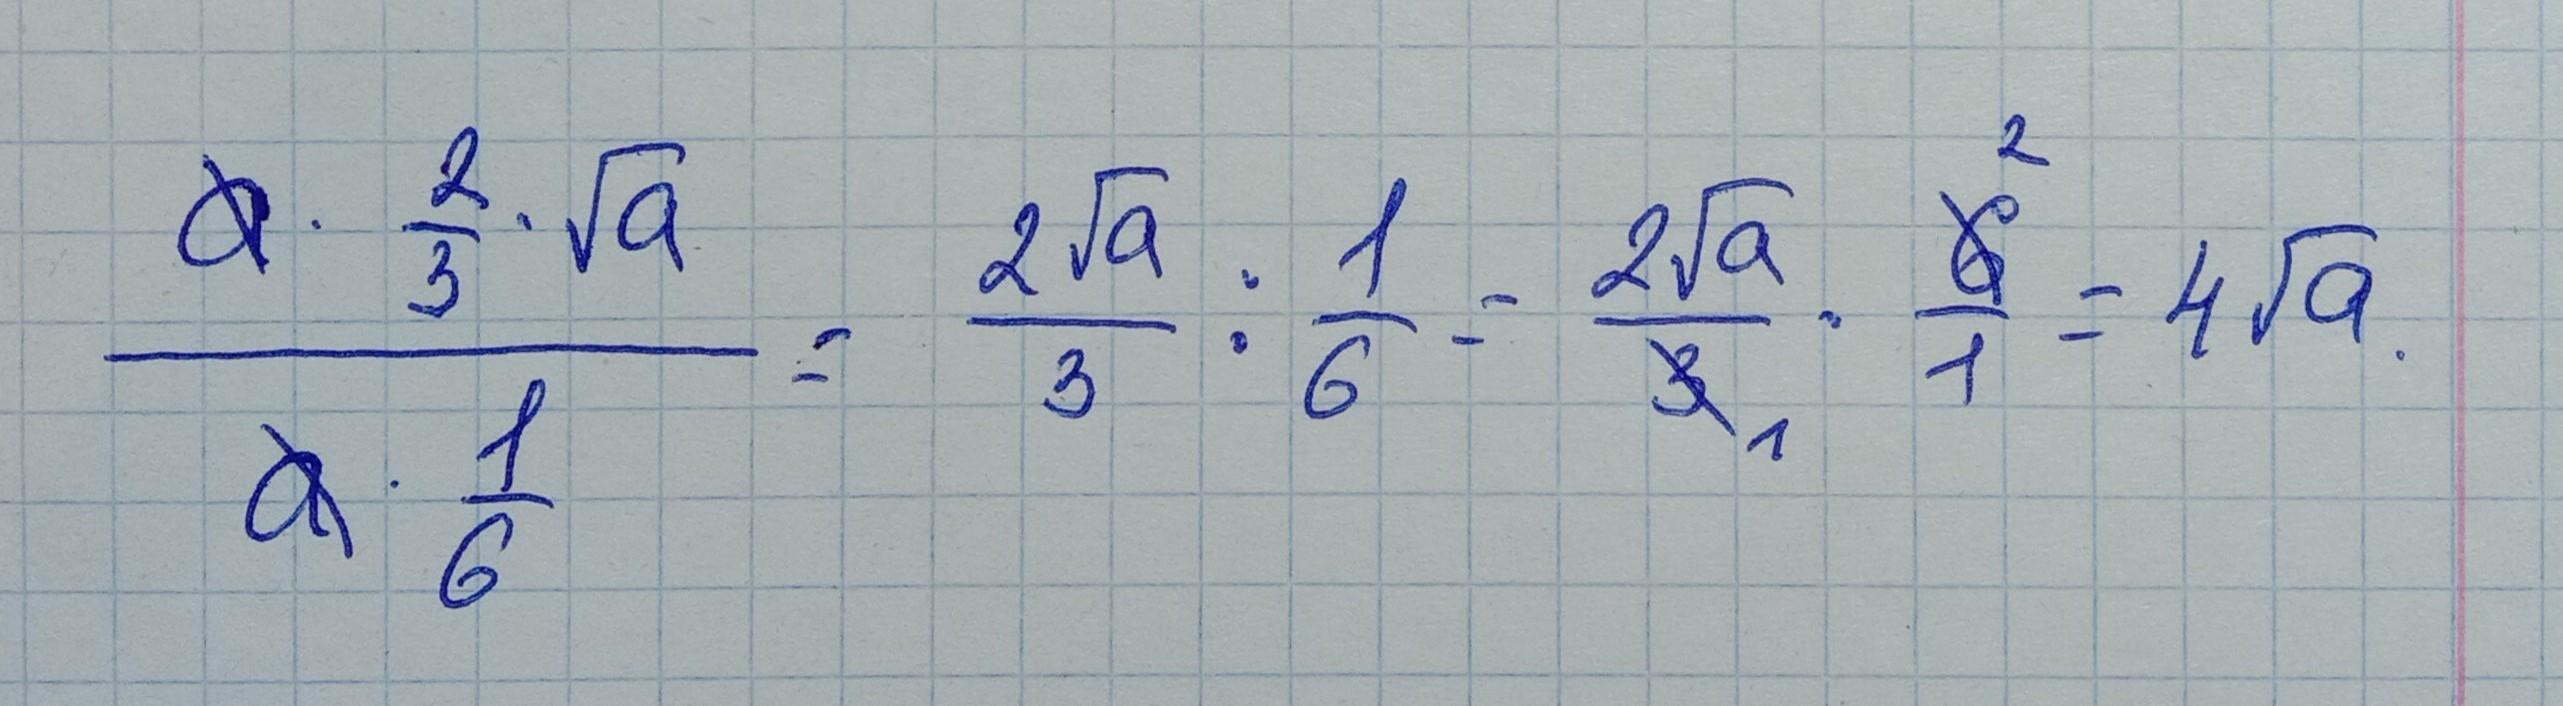 \frac{a \cdot \frac{2}{3} \cdot \sqrt{a}}{a \cdot \frac{1}{6}} = \frac{2\sqrt{a}}{3} : \frac{1}{6} = \frac{2\sqrt{a}}{\cancel{3}_1} \cdot \frac{\cancel{6}^2}{1} = 4\sqrt{a}.